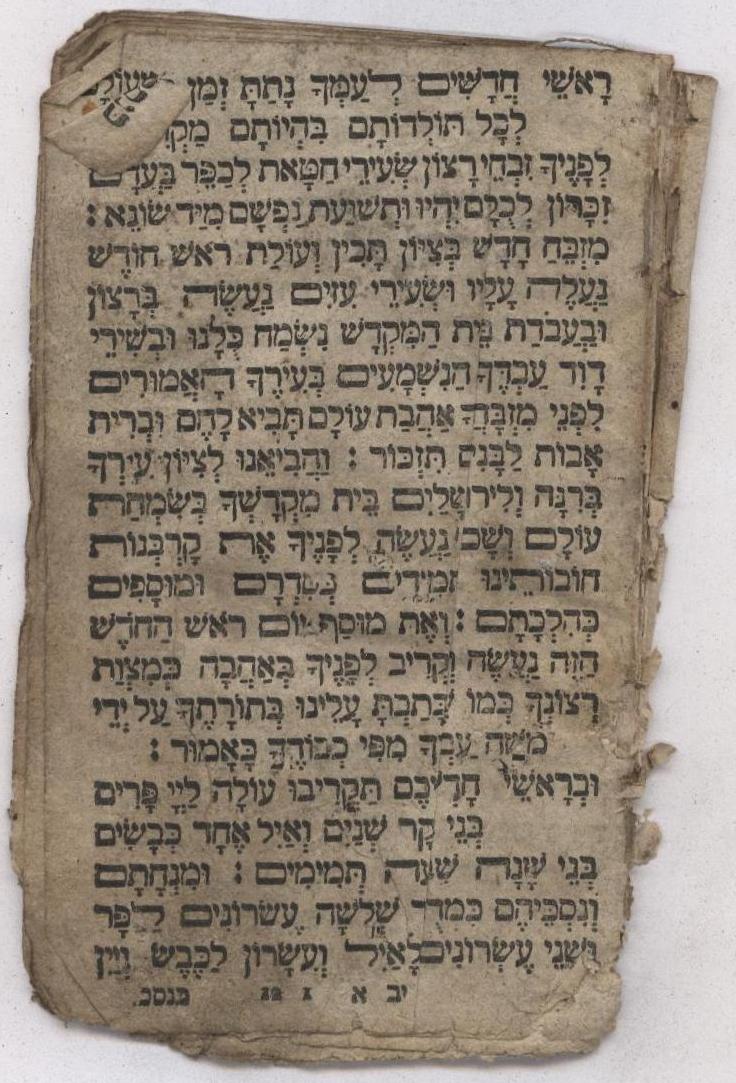 רָאשֵׁי חֳדָשִׁים לְעַמְּךָ נָתַתָּ זְמַן
לְכָל תּוֹלְדוֹתָם בִּהְיוֹתָם
לְפָנֶיךָ זִבְחֵי רָצוֹן שְׂעִירֵי חַטָּאת לְכַפֵּר בַּעֲדָם
זִכָּרוֹן לְכֻלָּם יִהְיוּ וּתְשׁוּעַת נַפְשָׁם מִיַּד שׂוֹנֵא :
מִזְבֵּחַ חָדָשׁ בְּצִיּוֹן תָּכִין וְעוֹלַת ראשׁ חוֹדֶשׁ
נַעֲלֶה עָלָיו וּשְׂעִירֵי עִזִּים נַעֲשֶׂה בְּרָצוֹן
וּבַעֲבֹדַת בֵּית הַמִּקְדָּשׁ נִשְׂמַח כֻּלָּנוּ וּבְשִׁירֵי
דָוִד עַבְדֶּךָ הַנִשְׁמָעִים בְּעִירֶךָ הָאֲמוּרִים
לִפְנֵי מִזְבָּחֶךָ אַהֲבַת עוֹלָם תָּבִיא לָהֶם וּבְרִית
אָבוֹת לַבָּנִים תִּזְכּוֹר : וַהֲבִיאֵנוּ לְצִיּוֹן עִירְךָ
בְּרִנָּה וְלִירוּשָׁלַיִם בֵּית מִקְדָּשְׁךָ בְּשִׂמְחַת
עוֹלָם וְשָׁם נַעֲשֶׂה לְפָנֶיךָ אֶת קָרְבְּנוֹת
חוֹבוֹתֵינוּ תְּמִידִים כְּסִדְרָם וּמוּסָפִים
כְּהִלְכָתָם : וְאֶת מוּסַף יוֹם ראשׁ הַחֹדֶשׁ
הַזֶּה נַעֲשֶׂה וְנַקְרִיב לְפָנֶיךָ בְּאַהֲבָה כְּמִצְוַת
רְצוֹנֶךָ כְּמוֹ שֶׁכָּתַבְתָּ עָלֵינוּ בְּתוֹרָתֶךָ עַל יְדֵי
משֶׁה עַבְדְּךָ מִפִּי כְבוֹדֶךָ כָּאָמוּר :
וּבְרָאשֵׁי חָדְשֵׁיכֶם תַּקְרִיבוּ עוֹלָה לַיְיָ פָּרִים
בְּנֵי בָקָר שְׁנַיִם וְאַיִל אֶחָד כְּבָשִׂים
בְּנֵי שָׁנָה שִׁבְעָה תְּמִימִים : וּמִנְחָתָם
וְנִסְכֵּיהֶם כִּמְדֻבָּר שְׁלשָׁה עֶשְׂרוֹנִים לַפָּר
וּשְׁנֵי עֶשְׂרוֹנִים לָאַיִל וְעִשָּׂרוֹן לַכֶּבֶשׂ וְיַיִן
יב א 1 12 כנסכ